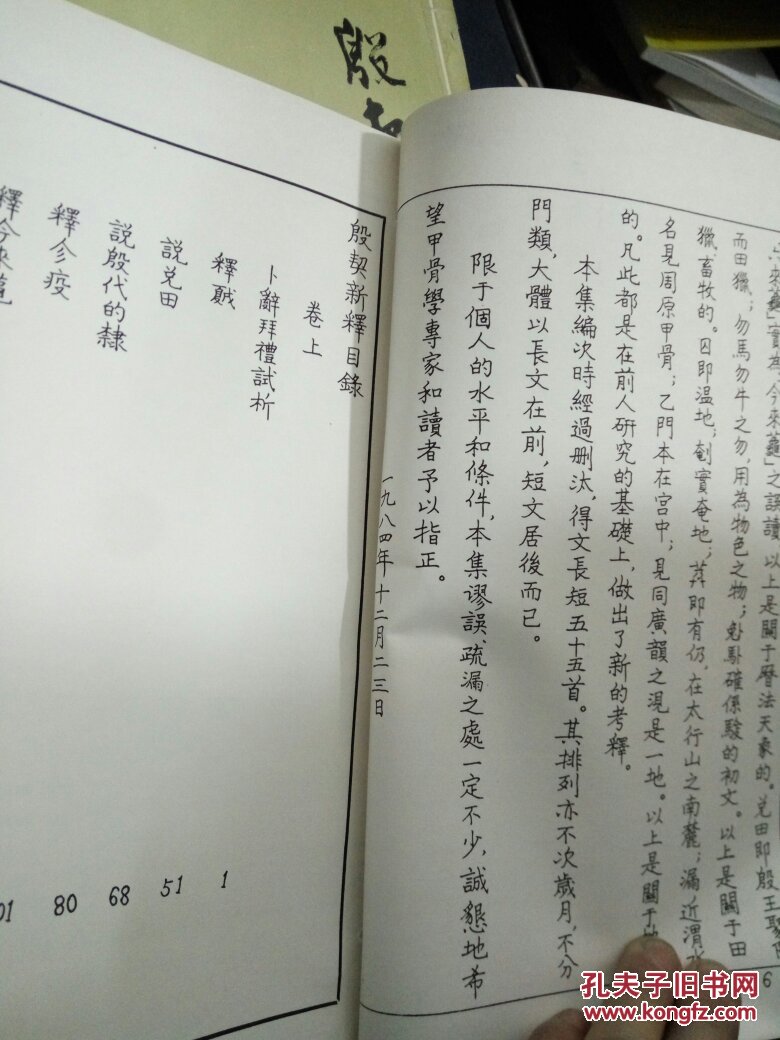 殷
六來𪚰」實為「今來𪚰」之誤讀 以上是關于曆法天象的。兑田即殷王
而田獵；勿馬勿牛之勿，用為物色之物；
確係駿的初文。以上是關于田
獵、畜牧的。囚即温地；
實奄地；
即有仍，在太行山之南麓；漏近渭水
名見周原甲骨；乙門本在宫中；
見同廣韻之涀是一地。以上是關于
的。凡此都是在前人研究的基礎上，做出了新的考釋。
本集編次時經過删汰，得文長短五十五首。其排列亦不次歲月，不分
門類，大體以長文在前，短文居後而已。
限于個人的水平和條件，本集謬誤、疏漏之處一定不少，誠懇地希
望甲骨學專家和讀者予以指正。
一九八四年十二月二三日
6
殷契新釋目錄
卷上
卜辭拜禮試析 1
釋
説兑田 51
説殷代的隸 68
釋㐱疫 80
釋今來
01
孔夫子旧书网
www.kongfz.com